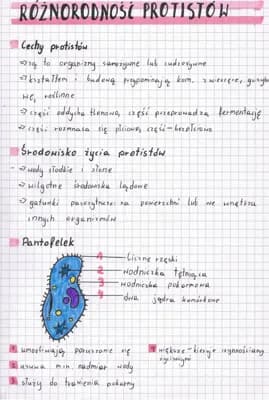 RÓŻNORODNOŚĆ PROTISTÓW
Cechy protistów
→ są to organizmy samożywne lub cudzożywne
→ kształtem i budową przypominają kom. zwierzęce, grzybo
we, roślinne
→ część oddycha tlenowo, część przeprowadza fermentację
→ część rozmnaża się płciowo, część - bezpłciowo
Środowisko życia protistów
→ wody słodkie i słone
→ wilgotne środowiska lądowe
→ gatunki pasożytnicze na powierzchni lub we wnętrzu
innych organizmów
Pantofelek
1 - liczne rzęski
2 - wodniczka tętniąca
3 - wodniczka pokarmowa
4 - dwa jądra komórkowe
1 umożliwiają poruszanie się
2 usuwa m.in. nadmiar wody
3 służy do trawienia pokarmu
4 większe - kieruje czynnościami
życiowymi